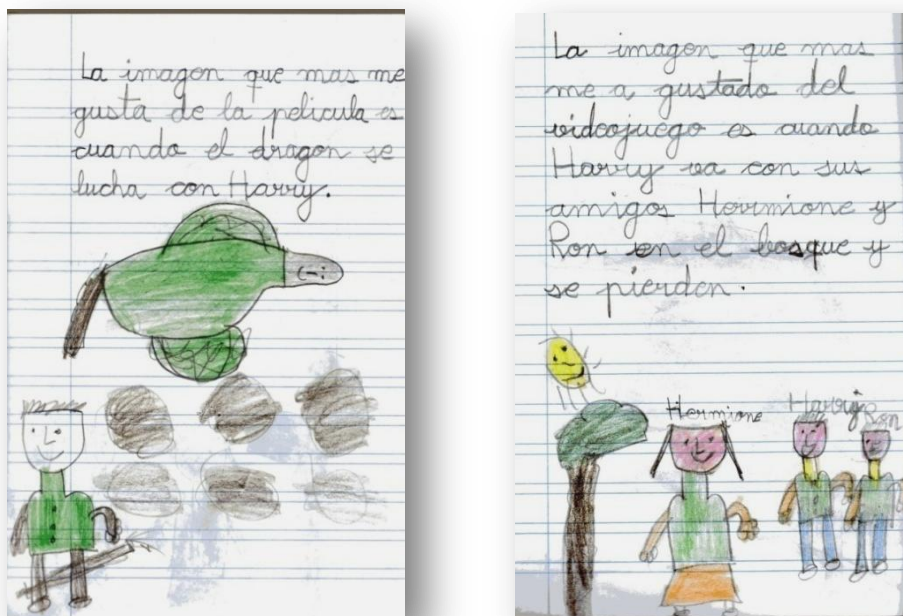 La imagen que mas me
gusta de la pelicula es
cuando el dragon se
lucha con Harry.
La imagen que mas
me a gustado del
videojuego es cuando
Harry va con sus
amigos Hermione y
Ron en el bosque y
se pierden.
Hermione
Harry
Ron